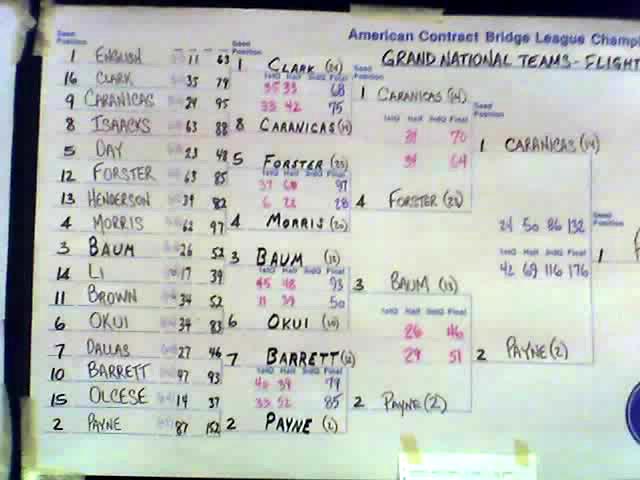 American Contract Bridge League Champi
GRAND NATIONAL TEAMS - FLIGHT
Seed Position
1 ENGLISH 11 63
16 CLARK 35 79
9 CARANICAS 24 95
8 ISAACKS 63 88
5 DAY 23 48
12 FORSTER 63 85
13 HENDERSON 39 82
4 MORRIS 62 97
3 BAUM 26 52
14 LI 17 39
11 BROWN 34 52
6 OKUI 39 83
7 DALLAS 27 46
10 BARRETT 47 93
15 OLCESE 14 37
2 PAYNE 87 152
Seed Position
1 CLARK
1stQ Half 3rdQ Final
35 39 68
33 42 75
8 CARANICAS
5 FORSTER
1stQ Half 3rdQ Final
37 97
6 28
4 MORRIS
3 BAUM
1stQ Half 3rdQ Final
45 48 93
11 39 50
6 OKUI
7 BARRETT
1stQ Half 3rdQ Final
79
33 52 85
2 PAYNE (2)
Seed Position
1 CARANICAS
1stQ Half 3rdQ Final
70
64
4 FORSTER
3 BAUM
1stQ Half 3rdQ Final
26 46
29 51
2 PAYNE (2)
Seed Position
1 CARANICAS
1stQ Half 3rdQ Final
24 50 86 132
1stQ Half 3rdQ Final
42 69 116 176
2 PAYNE (2)
Seed Position
1